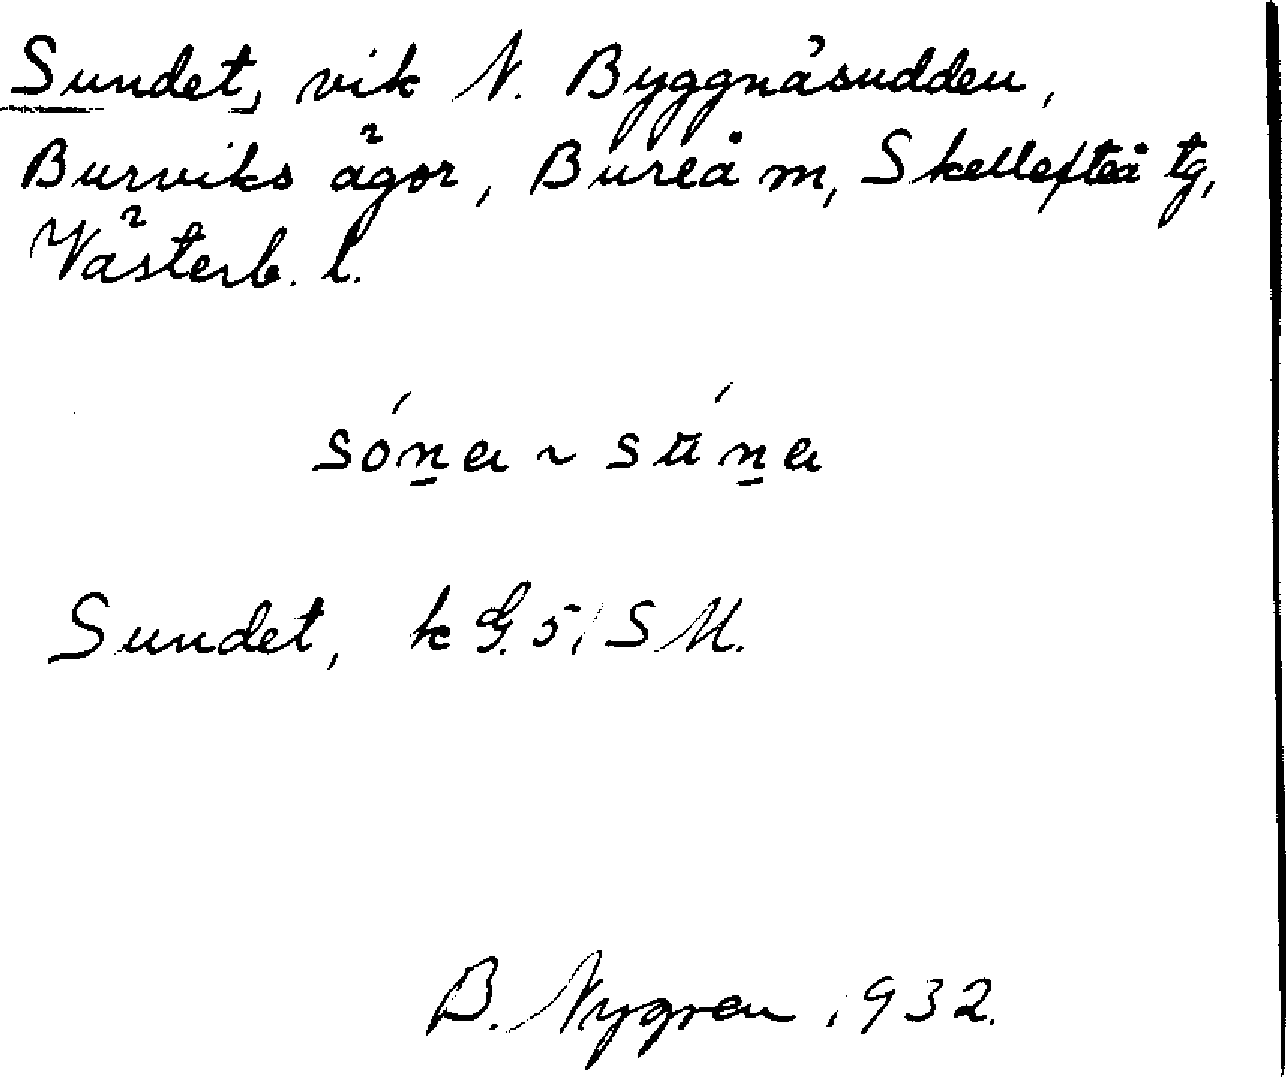 Sundet, vik N. Byggnäsudden,
Burviks ägor, Bureå m, Skellefteå tg,
Västerb. l.
Sundet, k G. 5, SM.
B. Nygren 1932.